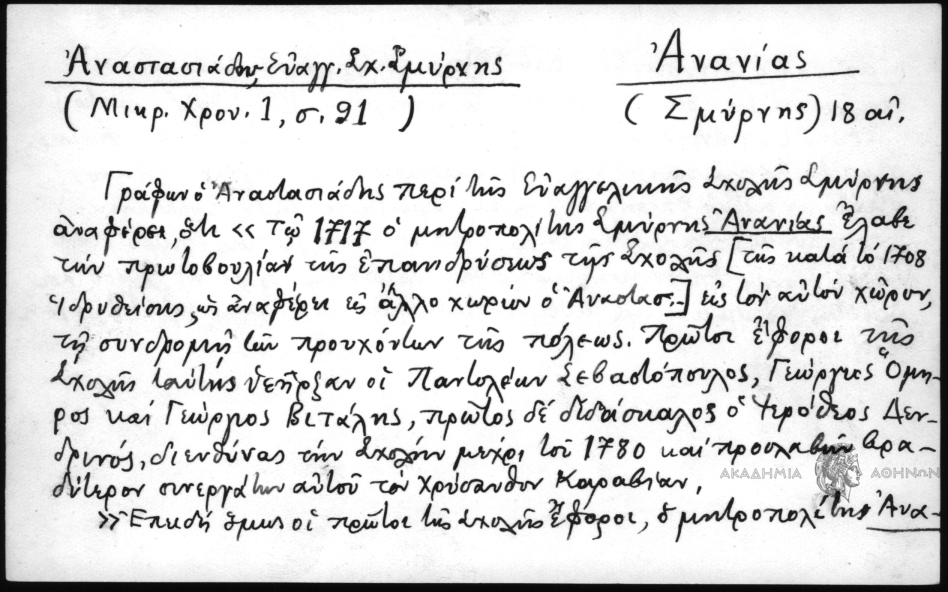 Ἀναστασιάδου, Εὐαγγ. Σχ. Σμύρνης
Ἀνανίας
(Μικρ. Χρον. 1, σ. 91)
(Σμύρνης) 18 αἰ.
Γράφων ὁ Ἀναστασιάδης περὶ τῆς Εὐαγγελικῆς Σχολῆς Σμύρνης
ἀναφέρει, ὅτι << τῷ 1717 ὁ μητροπολίτης Σμύρνης Ἀνανίας ἔλαβε
τὴν πρωτοβουλίαν τῆς ἐπανιδρύσεως τῆς Σχολῆς [τῆς κατὰ τὸ 1708
ἱδρυθείσης, ὡς ἀναφέρει εἰς ἄλλο χωρίον ὁ Ἀναστασ.] εἰς τὸν αὐτὸν χῶρον,
τῇ συνδρομῇ τῶν προυχόντων τῆς πόλεως. Πρῶτοι ἔφοροι τῆς
Σχολῆς ταύτης ὑπῆρξαν οἱ Παντολέων Σεβαστόπουλος, Γεώργιος Ὅμη-
ρος καὶ Γεώργιος Βιτάλης, πρῶτος δὲ διδάσκαλος ὁ Ἱερόθεος Δεν-
δρινός, διευθύνας τὴν Σχολὴν μέχρι τοῦ 1780 καὶ προσλαβὼν βρα-
δύτερον συνεργάτην αὐτοῦ τὸν Χρύσανθον Καραβίαν,
>> Ἐπειδὴ ὅμως οἱ πρῶτοι τῆς Σχολῆς ἔφοροι, ὁ μητροπολίτης Ἀνα-
ΑΚΑΔΗΜΙΑ ΑΘΗΝΩΝ